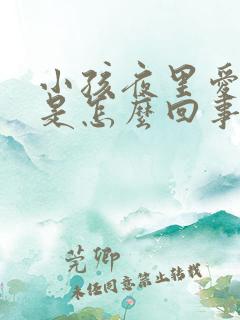 小孩夜里爱
是怎麼回事
莞卿
未经同意禁止转载